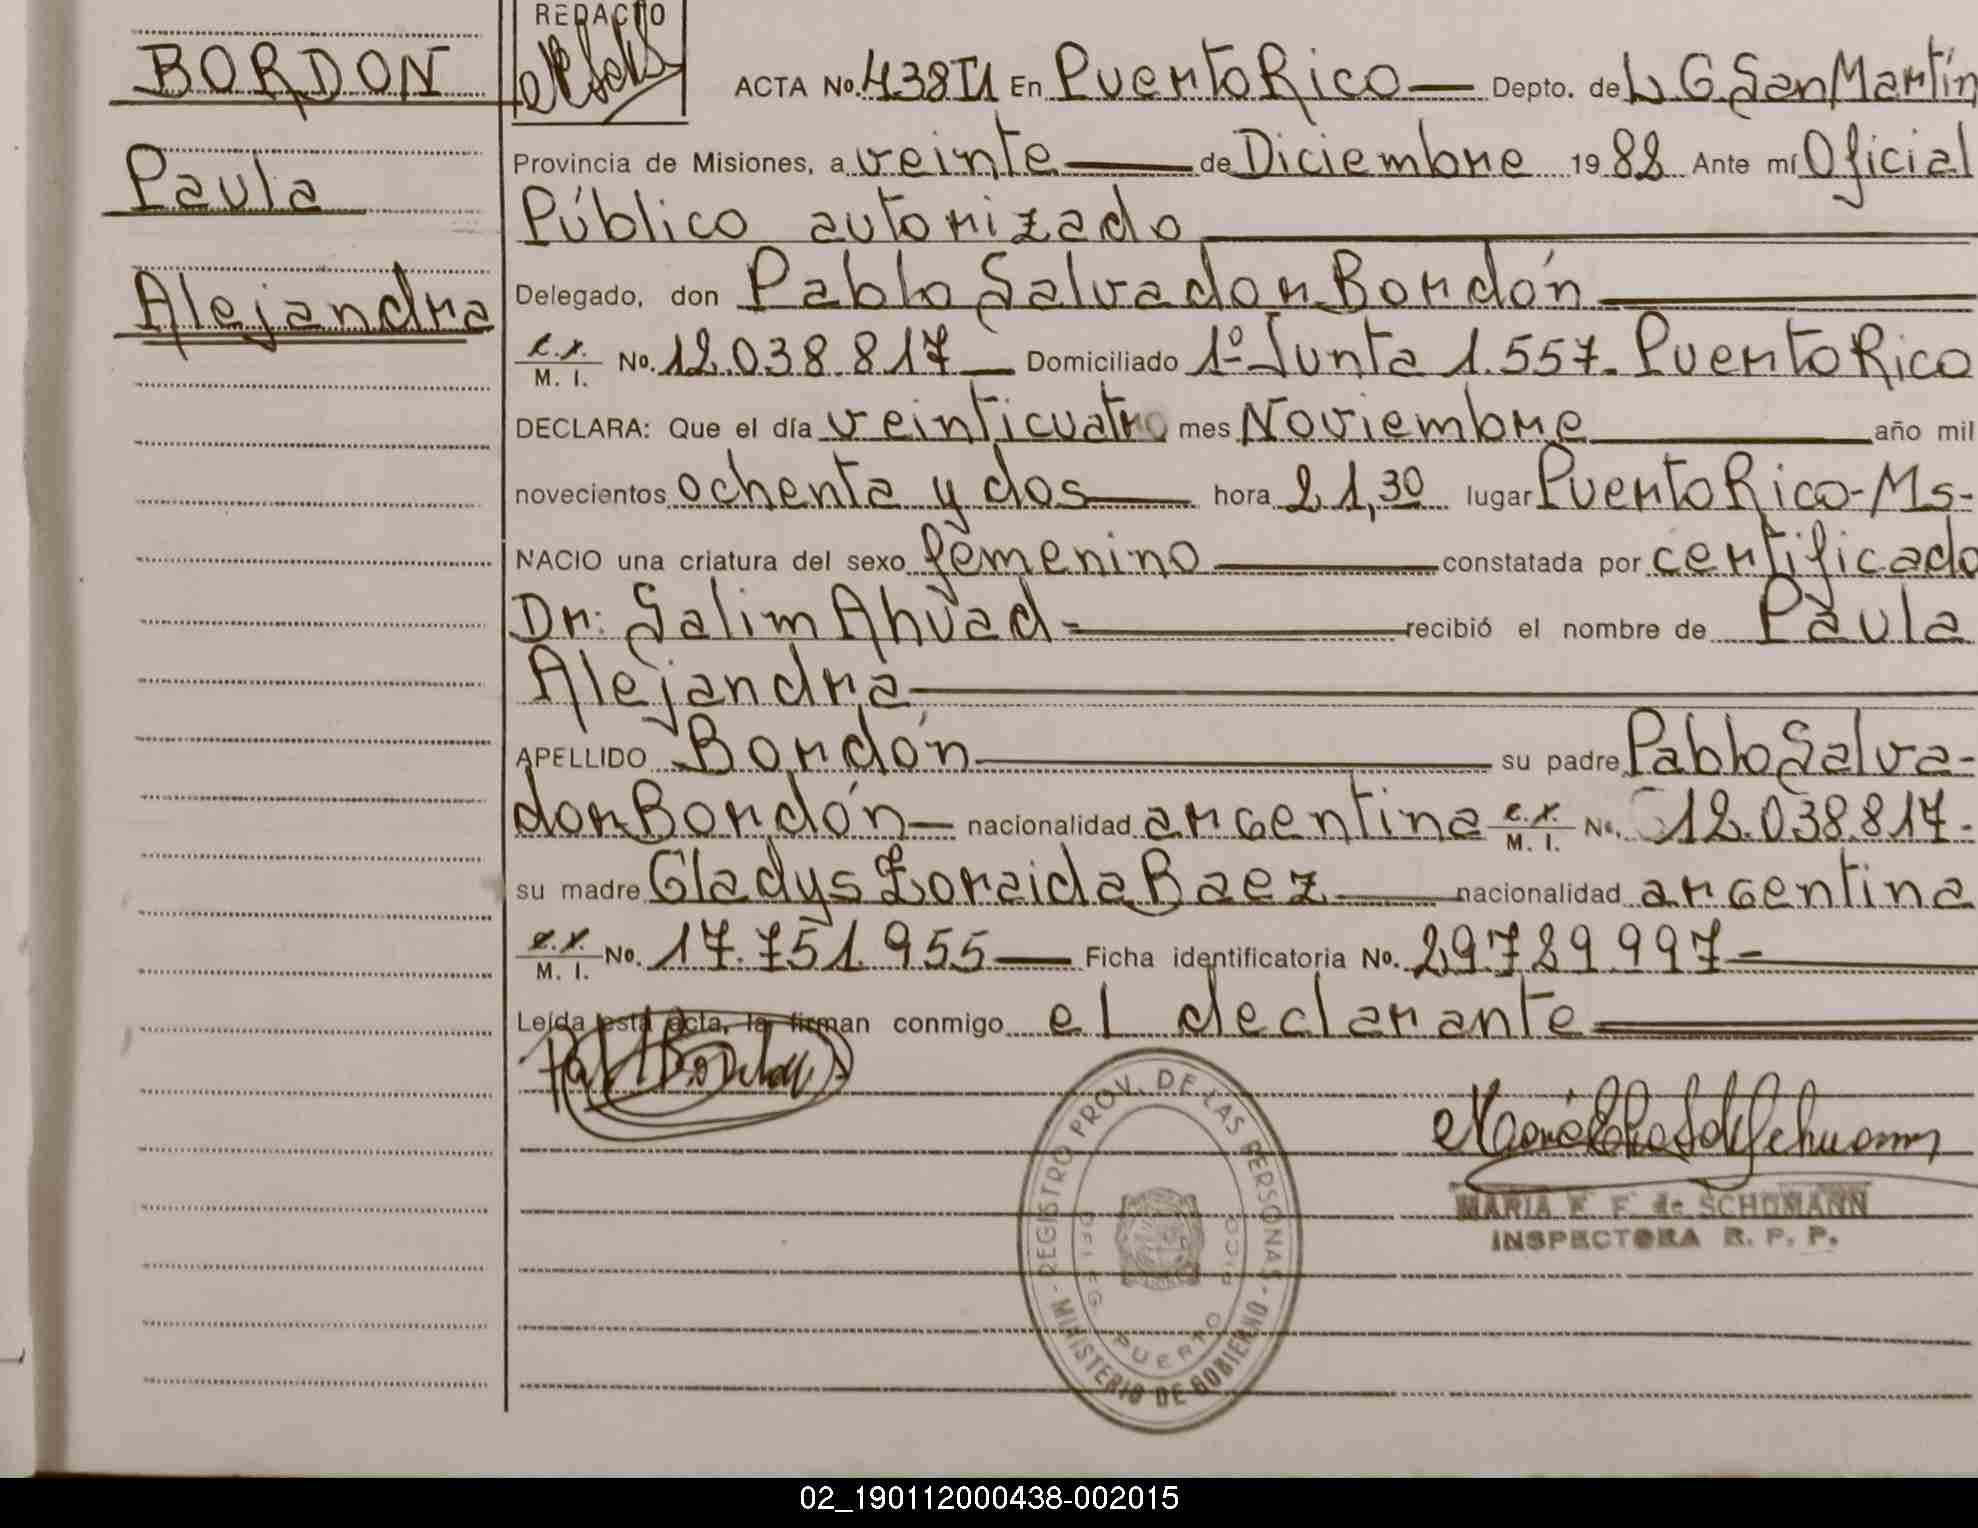 BORDON
Paula
Alejandra
REDACTO
ACTA No. 438 T1 En Puerto Rico — Depto. de L G. San Martín
Provincia de Misiones, a veinte — de Diciembre 1982 Ante mí Oficial
Público autorizado
Delegado, don Pablo Salvador Bordón
M. I. No. 12.038.817 — Domiciliado 1º Junta 1.557. Puerto Rico
DECLARA: Que el día veinticuatro mes Noviembre año mil
novecientos ochenta y dos — hora 21,30 lugar Puerto Rico-Ms-
NACIO una criatura del sexo femenino — constatada por certificado
Dr: Salim Ahuad - recibió el nombre de Paula
Alejandra
APELLIDO Bordón su padre Pablo Salva-
dor Bordón — nacionalidad argentina M. I. No. 12.038.817.
su madre Gladys Zoraida Baez — nacionalidad argentina
M. I. No. 17.751.955 — Ficha identificatoria No. 29.729.997-
Leída esta acta, la firman conmigo el declarante
REGISTRO PROV. DE LAS PERSONAS - MINISTERIO DE GOBIERNO -
PUERTO
MARIA E. F. de SCHUMANN
INSPECTORA R. P. P.
02_190112000438-002015